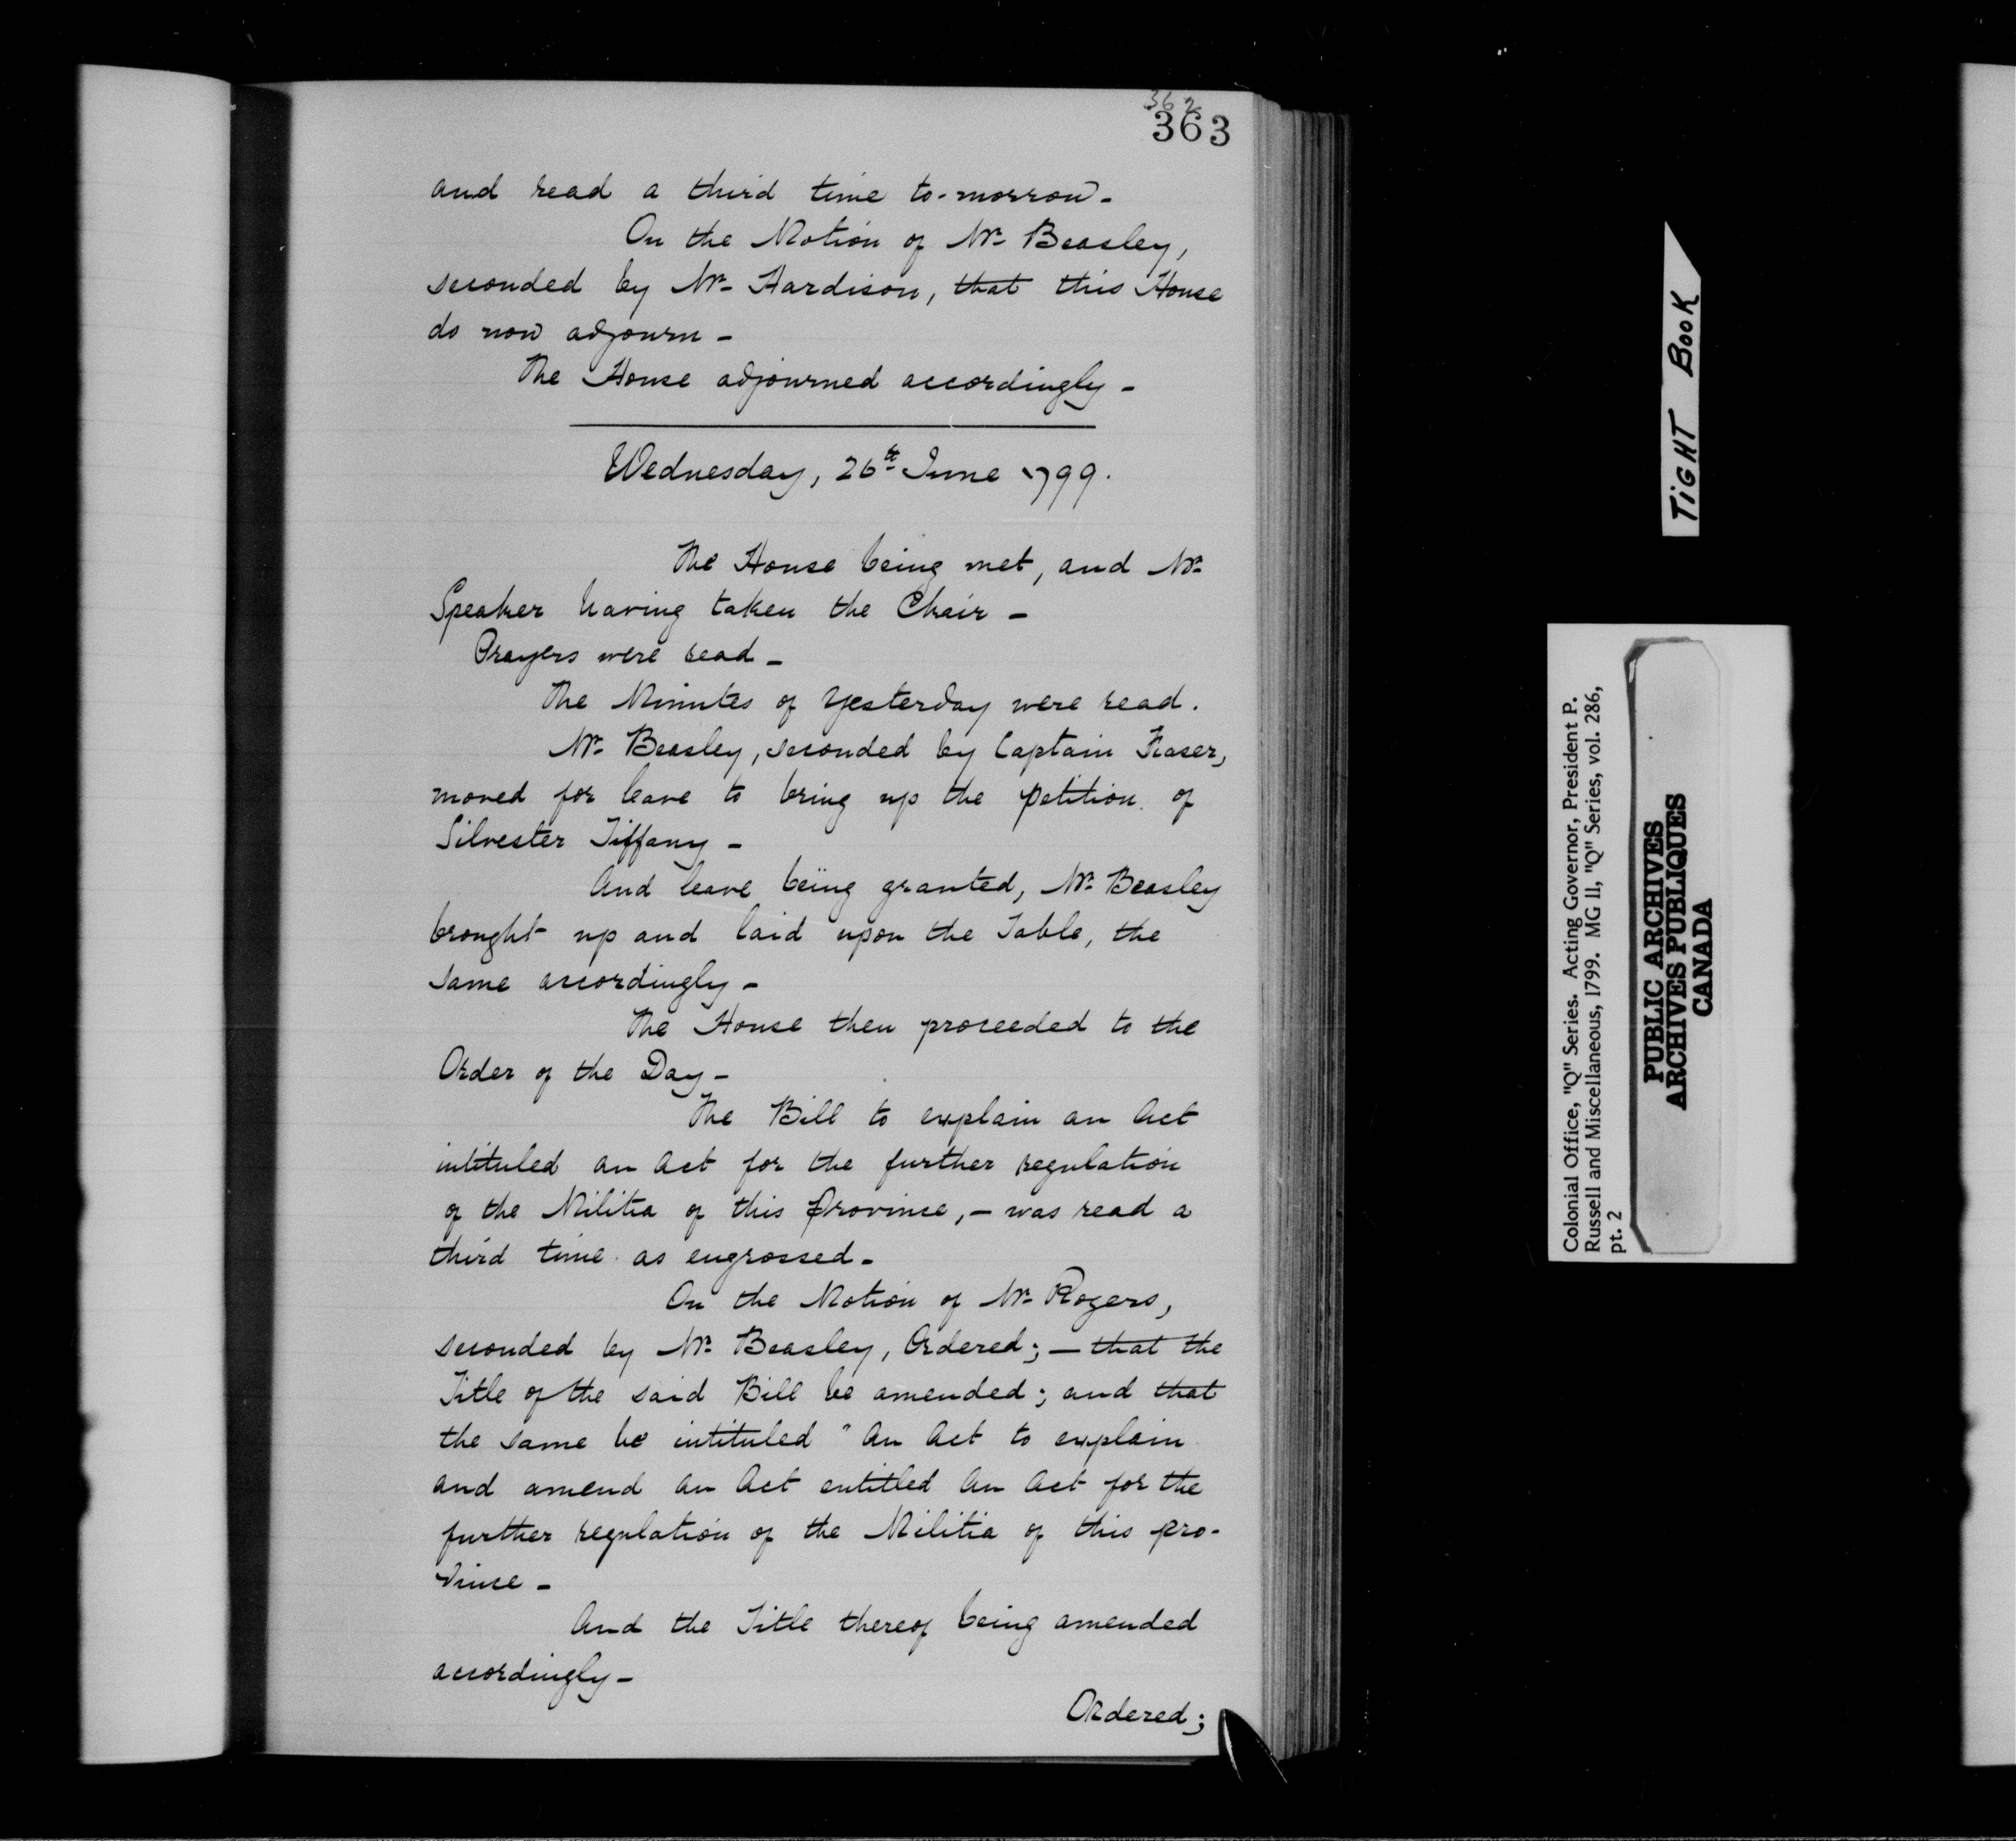 362
363
and read a third time to-morrow-
On the Motion of Mr. Beasley,
seconded by Mr. Hardison, that this House
do now adjourn-
The House adjourned accordingly-
Wednesday, 26th June 1799.
The House being met, and Mr.
Speaker having taken the Chair-
Prayers were read-
The Minutes of Yesterday were read.
Mr. Beasley, seconded by Captain Fraser,
moved for leave to bring up the petition of
Silvester Tiffany-
And leave being granted, Mr. Beasley
brought up and laid upon the Table, the
same accordingly-
The House then proceeded to the
Order of the Day-
The Bill to explain an Act
intituled an act for the further regulation
of the Militia of this Province,- was read a
third time as engrossed-
On the Motion of Mr. Rogers,
seconded by Mr. Beasley, Ordered;- that the
Title of the said Bill be amended; and that
the same be intituled "An Act to explain
and amend an Act entitled An Act for the
further regulation of the Militia of this pro-
vince-
And the Title thereof being amended
accordingly-
Ordered;
TIGHT BOOK
Colonial Office, "Q" Series. Acting Governor, President P.
Russell and Miscellaneous, 1799. MG 11, "Q" Series, vol. 286,
pt. 2
PUBLIC ARCHIVES
ARCHIVES PUBLIQUES
CANADA